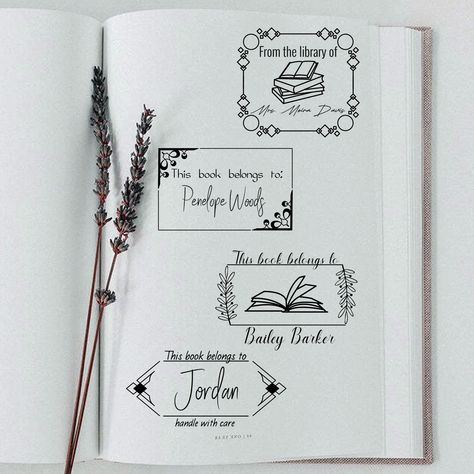 From the library of
Mrs. Moira Davis
This book belongs to:
Penelope Woods
This book belongs to
Bailey Barker
This book belongs to
Jordan
handle with care